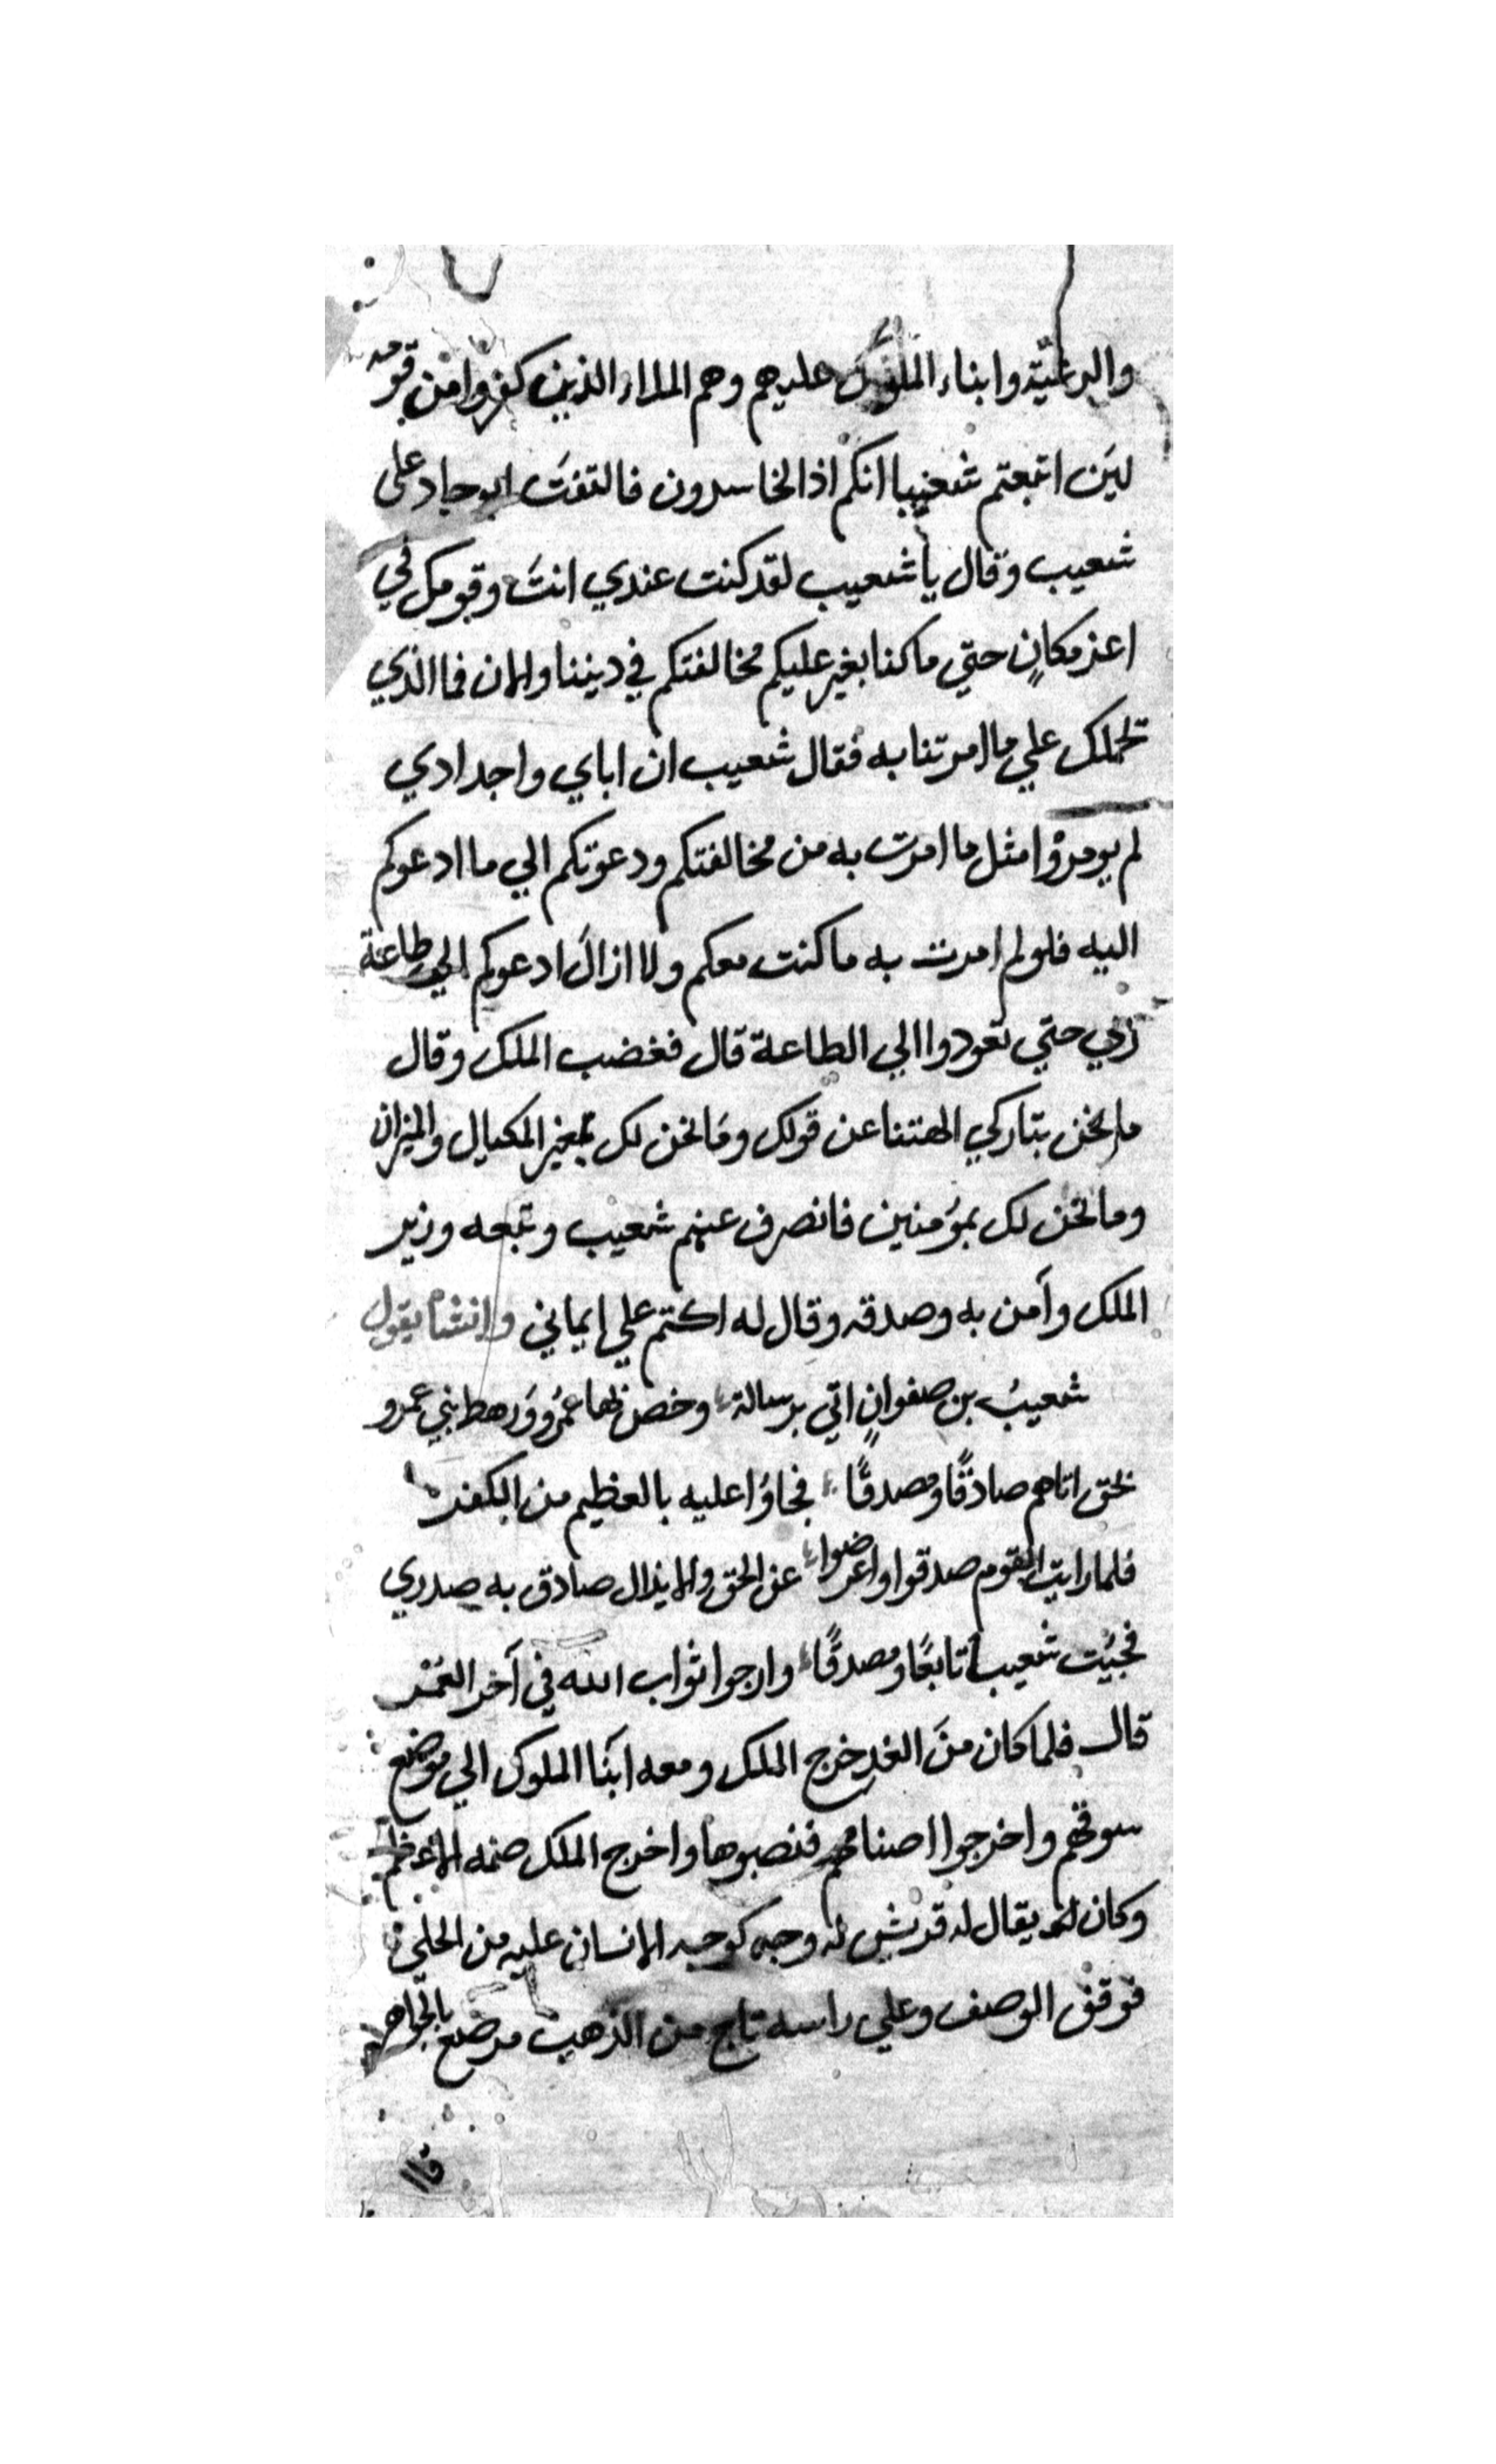 والرعية وابناء الملوك عليهم وهم الملاء الذين كفروا من قومه
لين اتبعتم شعيبا انكم اذا لخاسرون فالتفتَ ابو جاد على
شعيب وقال يا شعيب لقد كنت عندي انتَ وقومك في
اعز مكانٍ حتي ما كنا بغير عليكم مخالفتكم في ديننا والان فما الذي
تحملك علي ما امرتنا به فقال شعيب ان اباي واجدادي
لم يومروا مثل ما امرت به من مخالفتكم ودعوتكم الي ما ادعوكم
اليه فلو لم امرت به ما كنت معكم ولا ازالَ ادعوكم الي طاعة
ربي حتي تعودوا الي الطاعة قال فغضب الملك وقال
ما نحن بتاركي الهتنا عن قولك وما نحن لك بمغير المكيال والميزان
وما نحن لك بموُمنين فانصرف عنهم شعيب وتبعه وزير
الملك وآمن به وصدقه وقال له اكتم علي ايماني وانشا يقول
شعيبُ بن صفوانٍ اتي برسالة وخص بها عمرُو ورهط بني عمرو
بحق اتاهم صادقًا ومصدقًا فجاؤا عليه بالعظيم من الكفر
فلما رايت القوم صدقوا واعرضوا عن الحق والا يزال صادق به صدري
فجئت شعيبا تابعًا ومصدقًا وارجوا ثواب الله في آخر العمْر
قال فلما كان منَ الغد خرج الملك ومعه ابنَا الملوك الي موضع
سوقهم واخرجوا اصنامهم فنصبوها واخرج الملك صنمه الاعظم
وكان يقال له قريش له وجه كوجه الانسان عليه من الحلي
فوقف الوصف وعلي راسه تاج من الذهب مرصع بالجواهر